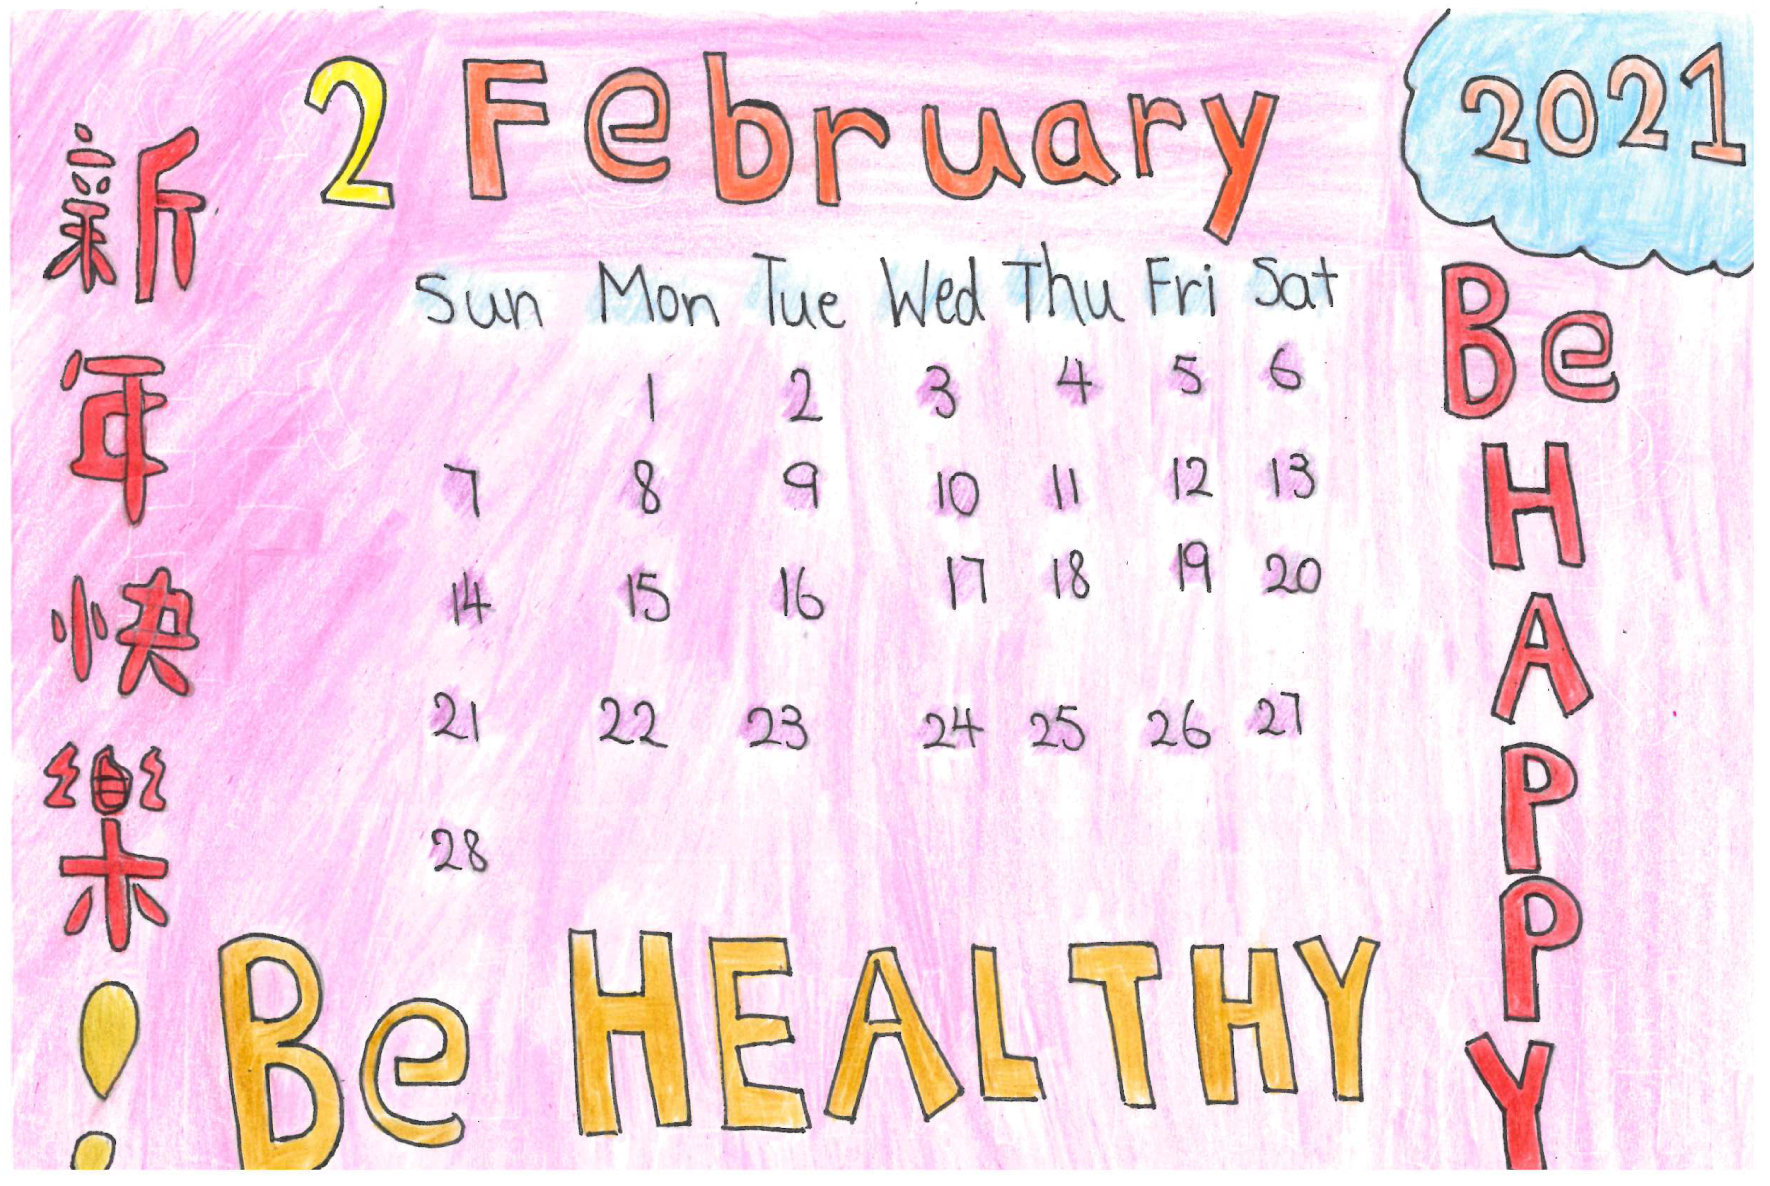 2 February
2021
新年快樂!
Sun Mon Tue Wed Thu Fri Sat
1 2 3 4 5 6
7 8 9 10 11 12 13
14 15 16 17 18 19 20
21 22 23 24 25 26 27
28
Be HAPPY
Be HEALTHY